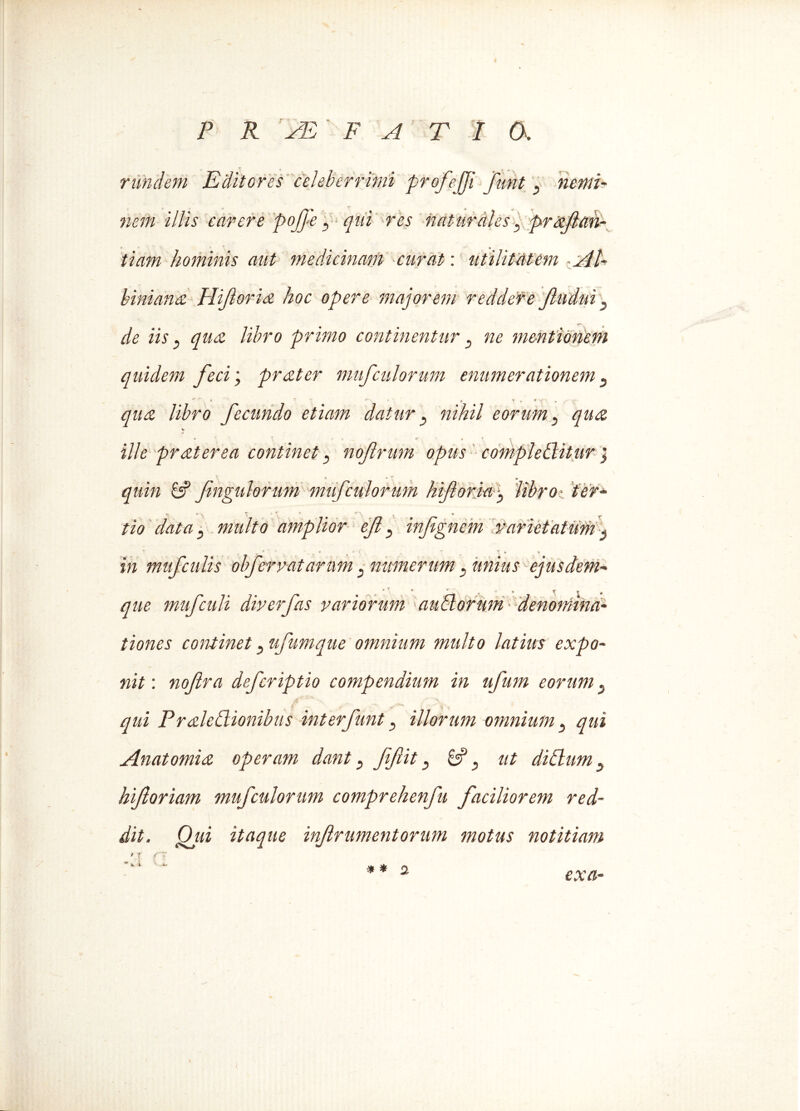 PRÆFATIO.
rundem Editores celeberrimi profeſſi ſunt, nemi-
nem illis carere poſſe, qui res naturales, præſtan-
tiam hominis aut medicinam curat: utilitatem Al-
binianæ Hiſtoriæ hoc opere majorem reddere ſtudui,
de iis, quæ libro primo continentur, ne mentionem
quidem feci; præter muſculorum enumerationem,
quæ libro ſecundo etiam datur, nihil eorum, quæ
ille præterea continet, noſtrum opus complectitur;
quin & ſingulorum muſculorum hiſtoria, libro ter-
tio data, multo amplior eſt, inſignem varietatum,
in muſculis obſervatarum, numerum, unius ejusdem-
que muſculi diverſas variorum auctorum denomina-
tiones continet, uſumque omnium multo latius expo-
nit: noſtra deſcriptio compendium in uſum eorum,
qui Prælectionibus interſunt, illorum omnium, qui
Anatomiæ operam dant, ſiſtit, &, ut dictum,
hiſtoriam muſculorum comprehenſu faciliorem red-
dit. Qui itaque inſtrumentorum motus notitiam
** 2
exa-